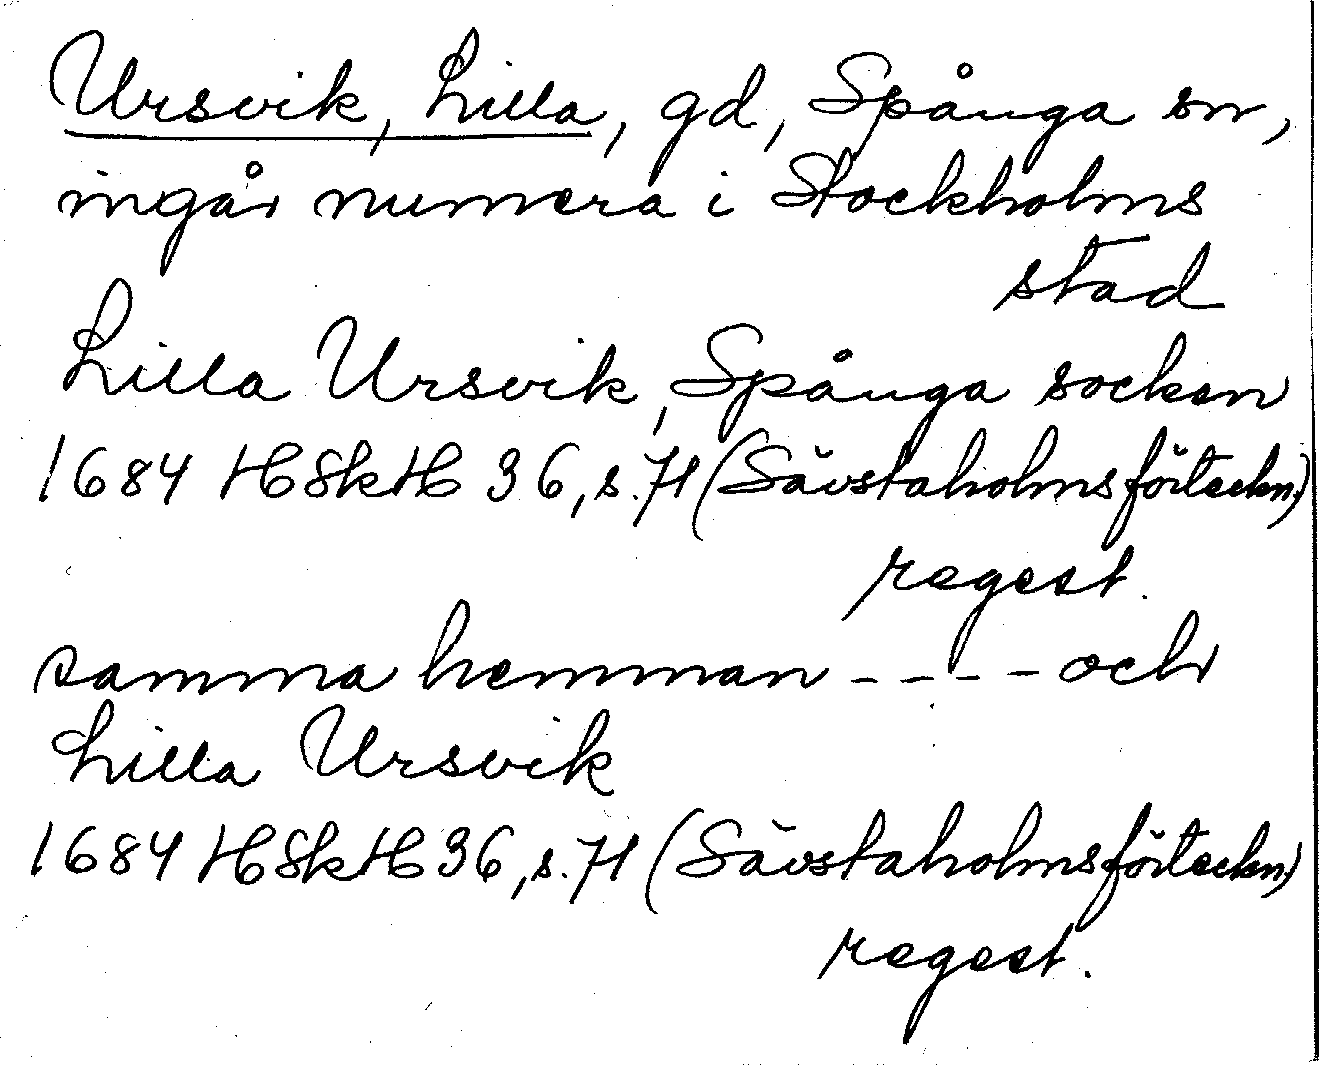 Ursvik, Lilla, gd, Spånga sn,
ingår numera i Stockholms
stad
Lilla Ursvik, Spånga socken
1684 HSkH 36, s. 71 (Sävstaholmsförteckn.)
regest.
samma hemman - - - - och
Lilla Ursvik
1684 HSkH 36, s. 71 (Sävstaholmsförteckn.)
regest.